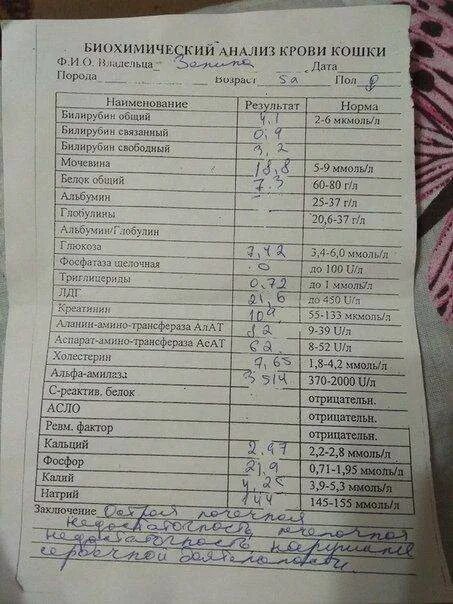 БИОХИМИЧЕСКИЙ АНАЛИЗ КРОВИ КОШКИ
Ф.И.О. Владельца Дата
Порода Возраст 5а Пол
Наименование Результат Норма
Билирубин общий 4,1 2-6 мкмоль/л
Билирубин связанный 0,9
Билирубин свободный 3,2
Мочевина 18,8 5-9 ммоль/л
Белок общий 7.3 60-80 г/л
Альбумин 25-37 г/л
Глобулины 20,6-37 г/л
Альбумин/Глобулин
Глюкоза 7,42 3,4-6,0 ммоль/л
Фосфатаза щелочная 0 до 100 U/л
Триглицериды 0,72 до 1 ммоль/л
ЛДГ 21,6 до 450 U/л
Креатинин 55-133 мкмоль/л
Аланин-амино-трансфераза АлАТ 82 9-39 U/л
Аспарат-амино-трансфераза АсАТ 62 8-52 U/л
Холестерин 7,65 1,8-4,2 ммоль/л
Альфа-амилаз 3514 370-2000 U/л
С-реактив. белок отрицательн.
АСЛО отрицательн.
Ревм. фактор отрицательн.
Кальций 2,97 2,2-2,8 ммоль/л
Фосфор 21,9 0,71-1,95 ммоль/л
Калий 4,25 3,9-5,3 ммоль/л
Натрий 144 145-155 ммоль/л
Заключение Острая почечная
недостаточность печеночная
недостаточность нарушение
сердечной деятельности